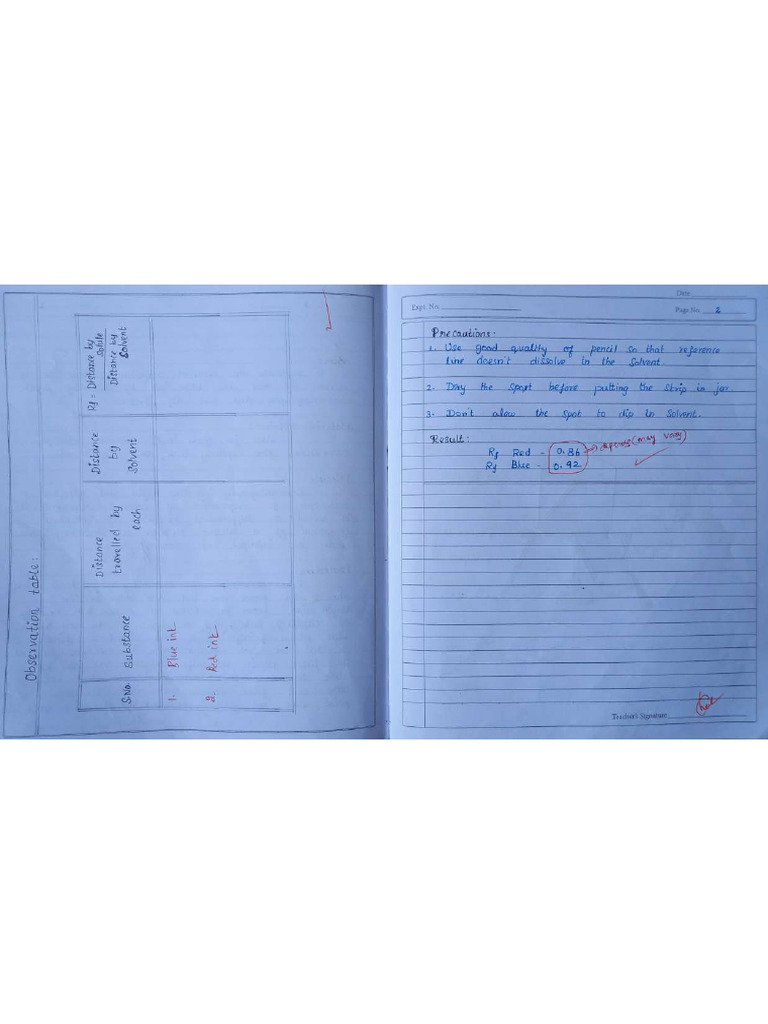 Observation table:
S.No.
Substance
Distance
travelled by
each
Distance
by
Solvent
Rf = Distance by
solute
Distance by
Solvent
1.
Blue ink
2.
Red ink
Date
Expt. No.
Page No. 2
Precautions-
1. Use good quality of pencil so that reference
line doesn't dissolve in the solvent.
2. Dry the Spot before putting the strip in jar.
3. Don't allow the spot to dip in Solvent.
Result:
Rf Red - 0.86 → depends (may vary)
Rf Blue - 0.92
Teacher's Signature